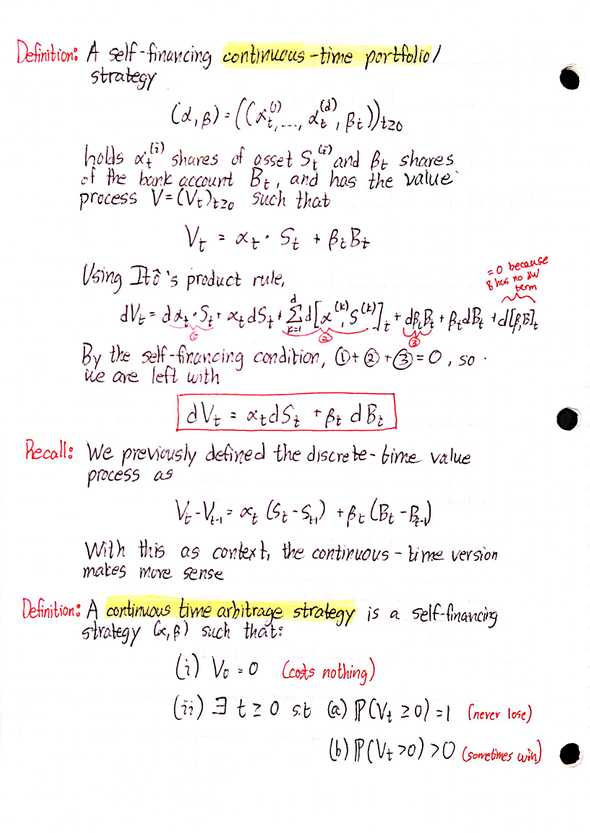 Definition: A self-financing continuous-time portfolio/
strategy
(α,β) = ((α_t^(1),...., α_t^(d), β_t))_t≥0
holds α_t^(i) shares of asset S_t^(i) and β_t shares
of the bank account B_t, and has the value
process V=(V_t)_t≥0 such that
V_t = α_t · S_t + β_t B_t
Using Itô's product rule,
= 0 because
B has no dW
term
dV_t = dα_t · S_t + α_t dS_t + Σ_{k=1}^d d[α^(k), S^(k)]_t + dβ_t B_t + β_t dB_t + d[β,B]_t
① ② ③
By the self-financing condition, ①+②+③=0, so
we are left with
dV_t = α_t dS_t + β_t dB_t
Recall: We previously defined the discrete-time value
process as
V_t - V_t-1 = α_t (S_t - S_t-1) + β_t (B_t - B_t-1)
With this as context, the continuous-time version
makes more sense
Definition: A continuous time arbitrage strategy is a self-financing
strategy (α,β) such that:
(i) V_0 = 0 (costs nothing)
(ii) ∃ t ≥ 0 s.t (a) ℙ(V_t ≥ 0) = 1 (never lose)
(b) ℙ(V_t > 0) > 0 (sometimes win)